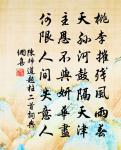 桃李摧殘風雨春
天孫河鼓隔天津
主恩不與妍華盡
何限人間失意人
陳師道題柱二首詞典
網